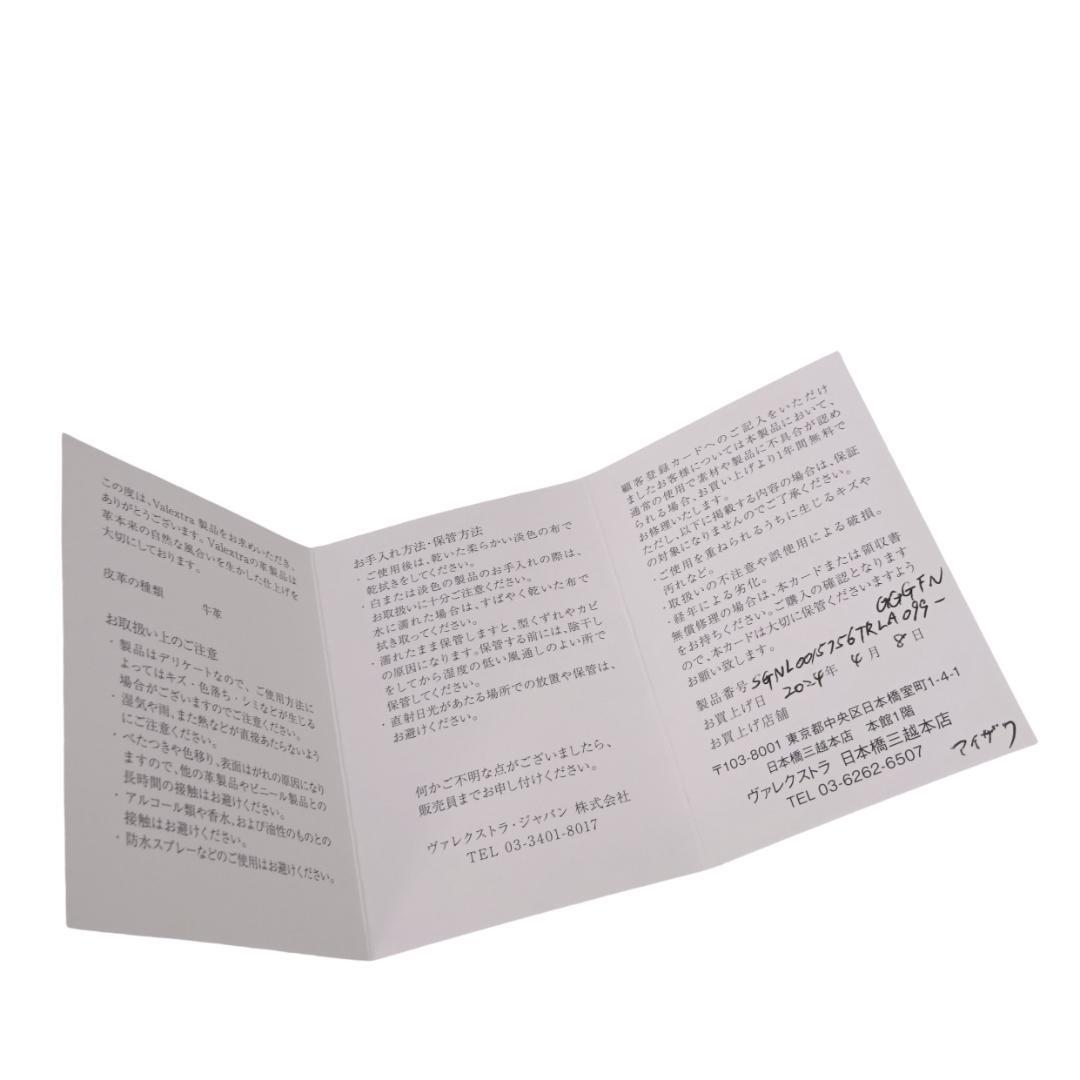 この度は、Valextra 製品をお求めいただき、
ありがとうございます。Valextraの革製品は
革本来の自然な風合いを生かした仕上げを
大切にしております。
皮革の種類
牛革
お取扱い上のご注意
・製品はデリケートなので、ご使用方法に
よってはキズ・色落ち・シミなどが生じる
場合がございますのでご注意ください。
・湿気や雨、また熱などが直接あたらないよう
にご注意ください。
・べたつきや色移り、表面はがれの原因になり
ますので、他の革製品やビニール製品との
長時間の接触はお避けください。
・アルコール類や香水、および油性のものとの
接触はお避けください。
・防水スプレーなどのご使用はお避けください。
お手入れ方法・保管方法
・ご使用後は、乾いた柔らかい淡色の布で
乾拭きをしてください。
・白または淡色の製品のお手入れの際は、
お取扱いに十分ご注意ください。
水に濡れた場合は、すばやく乾いた布で
拭き取ってください。
・濡れたまま保管しますと、型くずれやカビ
の原因になります。保管する前には、陰干し
をしてから湿度の低い風通しのよい所で
保管してください。
・直射日光があたる場所での放置や保管は、
お避けください。
何かご不明な点がございましたら、
販売員までお申し付けください。
ヴァレクストラ・ジャパン 株式会社
TEL 03-3401-8017
顧客登録カードへのご記入をいただけ
ましたお客様については本製品において、
通常の使用で素材や製品に不具合が認め
られる場合、お買い上げより1年間無料で
お修理いたします。
ただし、以下に掲載する内容の場合は、保証
の対象になりませんのでご了承ください。
・ご使用を重ねられるうちに生じるキズや
汚れなど。
・取扱いの不注意や誤使用による破損。
・経年による劣化。
無償修理の場合は、本カードまたは領収書
をお持ちください。ご購入の確認となります
ので、本カードは大切に保管くださいますよう
お願い致します。
GGGFN
製品番号 SGNL0015756TRLA099-
お買上げ日 2024年 4月 8日
お買上げ店舗
〒103-8001 東京都中央区日本橋室町1-4-1
日本橋三越本店 本館1階
ヴァレクストラ 日本橋三越本店
TEL 03-6262-6507
アイザワ